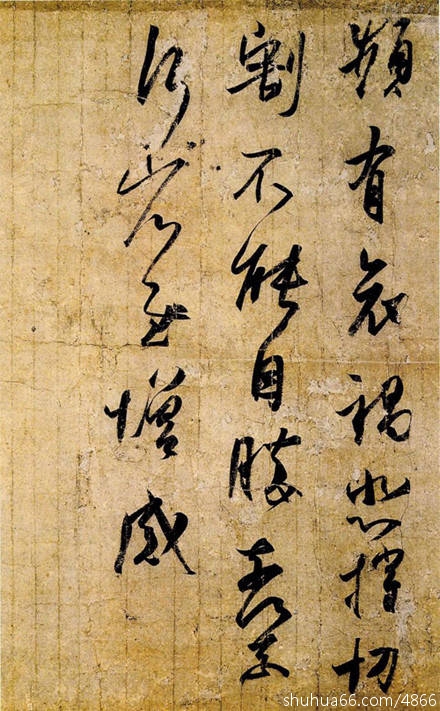 頻有哀禍悲摧切
割不能自勝奈何
奈何省慰增感
shuhua66.com/4866